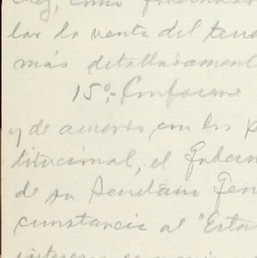 ley, como
lar la venta del
más detalladament
15º- Conforme
y de acuerdo con los p
titucional, el Gobern
de su Secretario Gen
cunstancia al "Esta